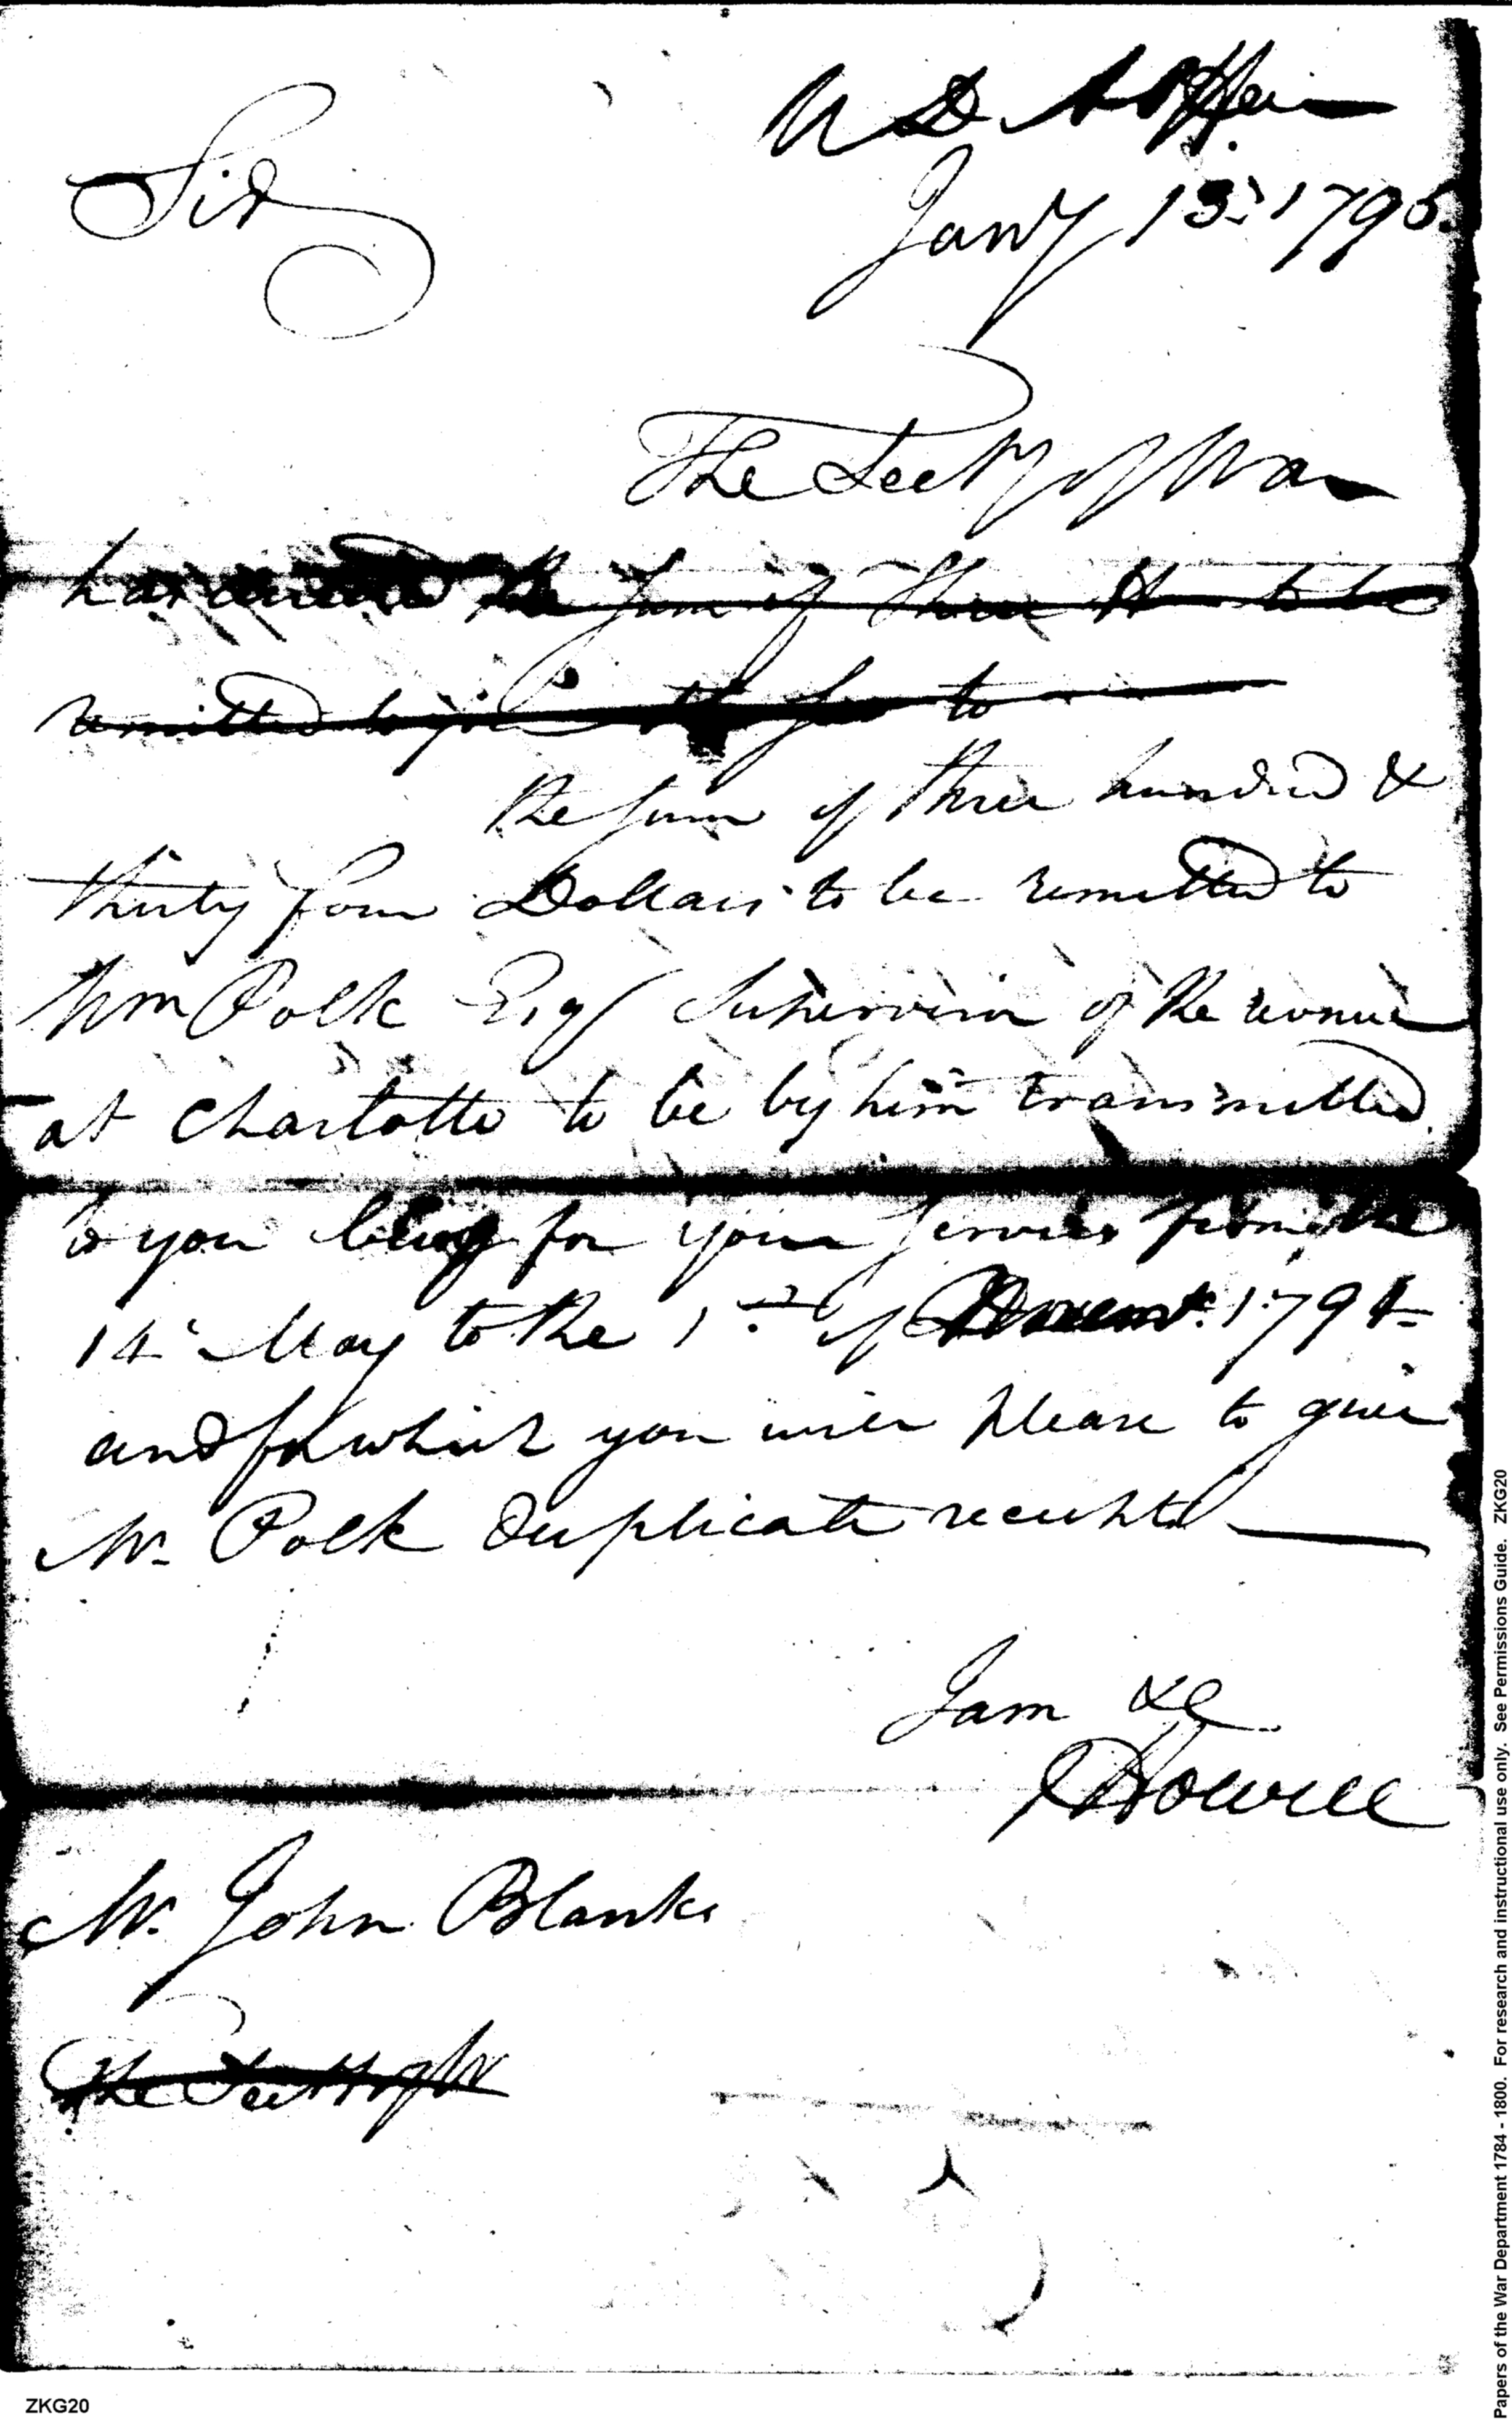 W D A Office
Jany 13. 1795.
Sir
The Secty of War
has directed the sum of Three H to be
remitted to you to
the sum of three hundred &
thirty four Dollars to be remitted to
Wm Polk Esqr Supervisor of the revenue
at Charlotte to be by him transmitted
to you being for your services from the
14 May to the 1st of Novemr. 1794
and for which you will please to give
Mr Polk duplicate receipts
I am &c
Howell
Mr. John Blanks
The Secty of W
ZKG20
Papers of the War Department 1784 - 1800. For research and instructional use only. See Permissions Guide. ZKG20